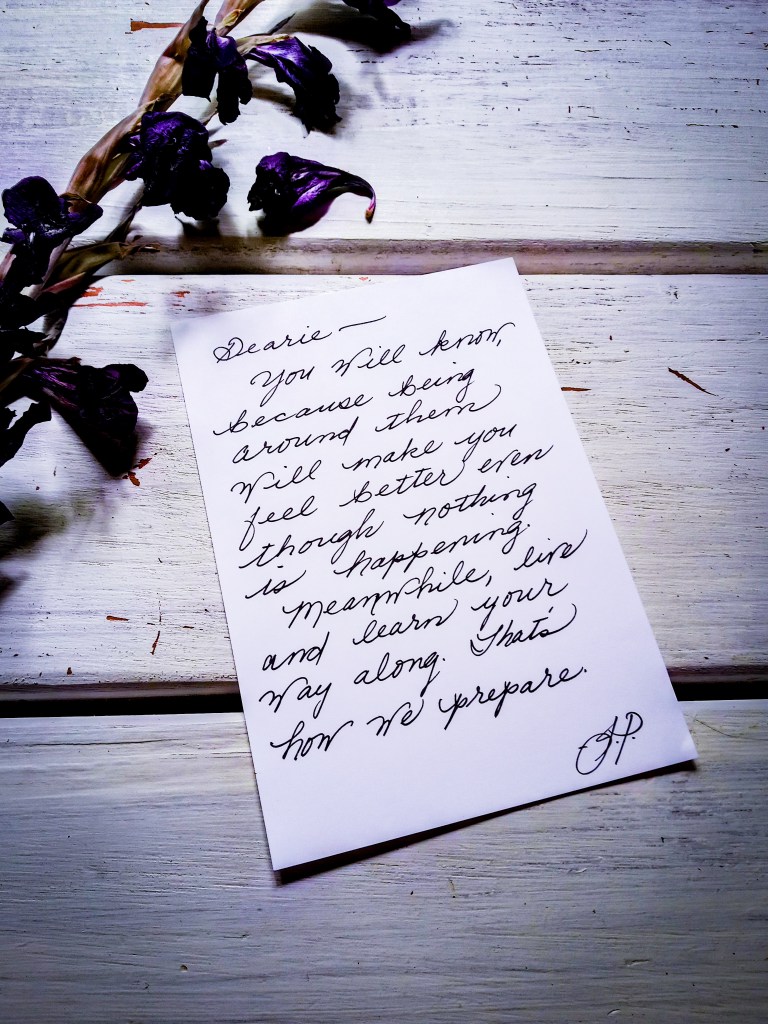 Dearie —
You will know,
because being
around them
will make you
feel better even
though nothing
is happening.
Meanwhile, live
and learn your
way along. That's
how we prepare.
A.P.